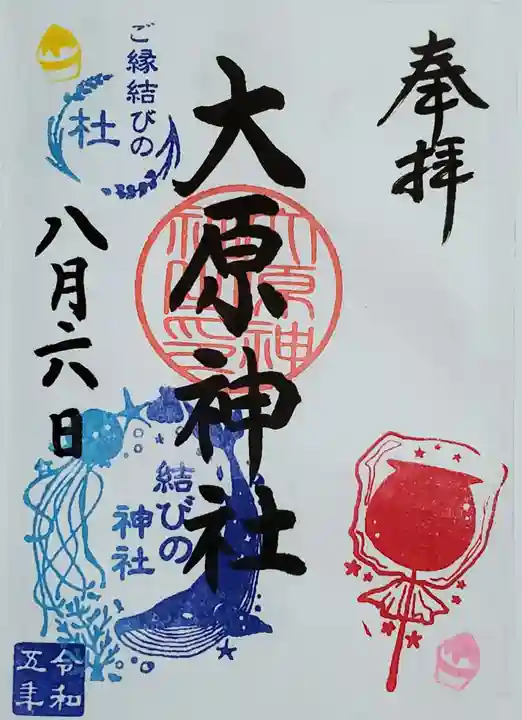 奉拝
大原神社
大原神社印
ご縁結びの
杜
八月六日
結びの
神社
令和
五年